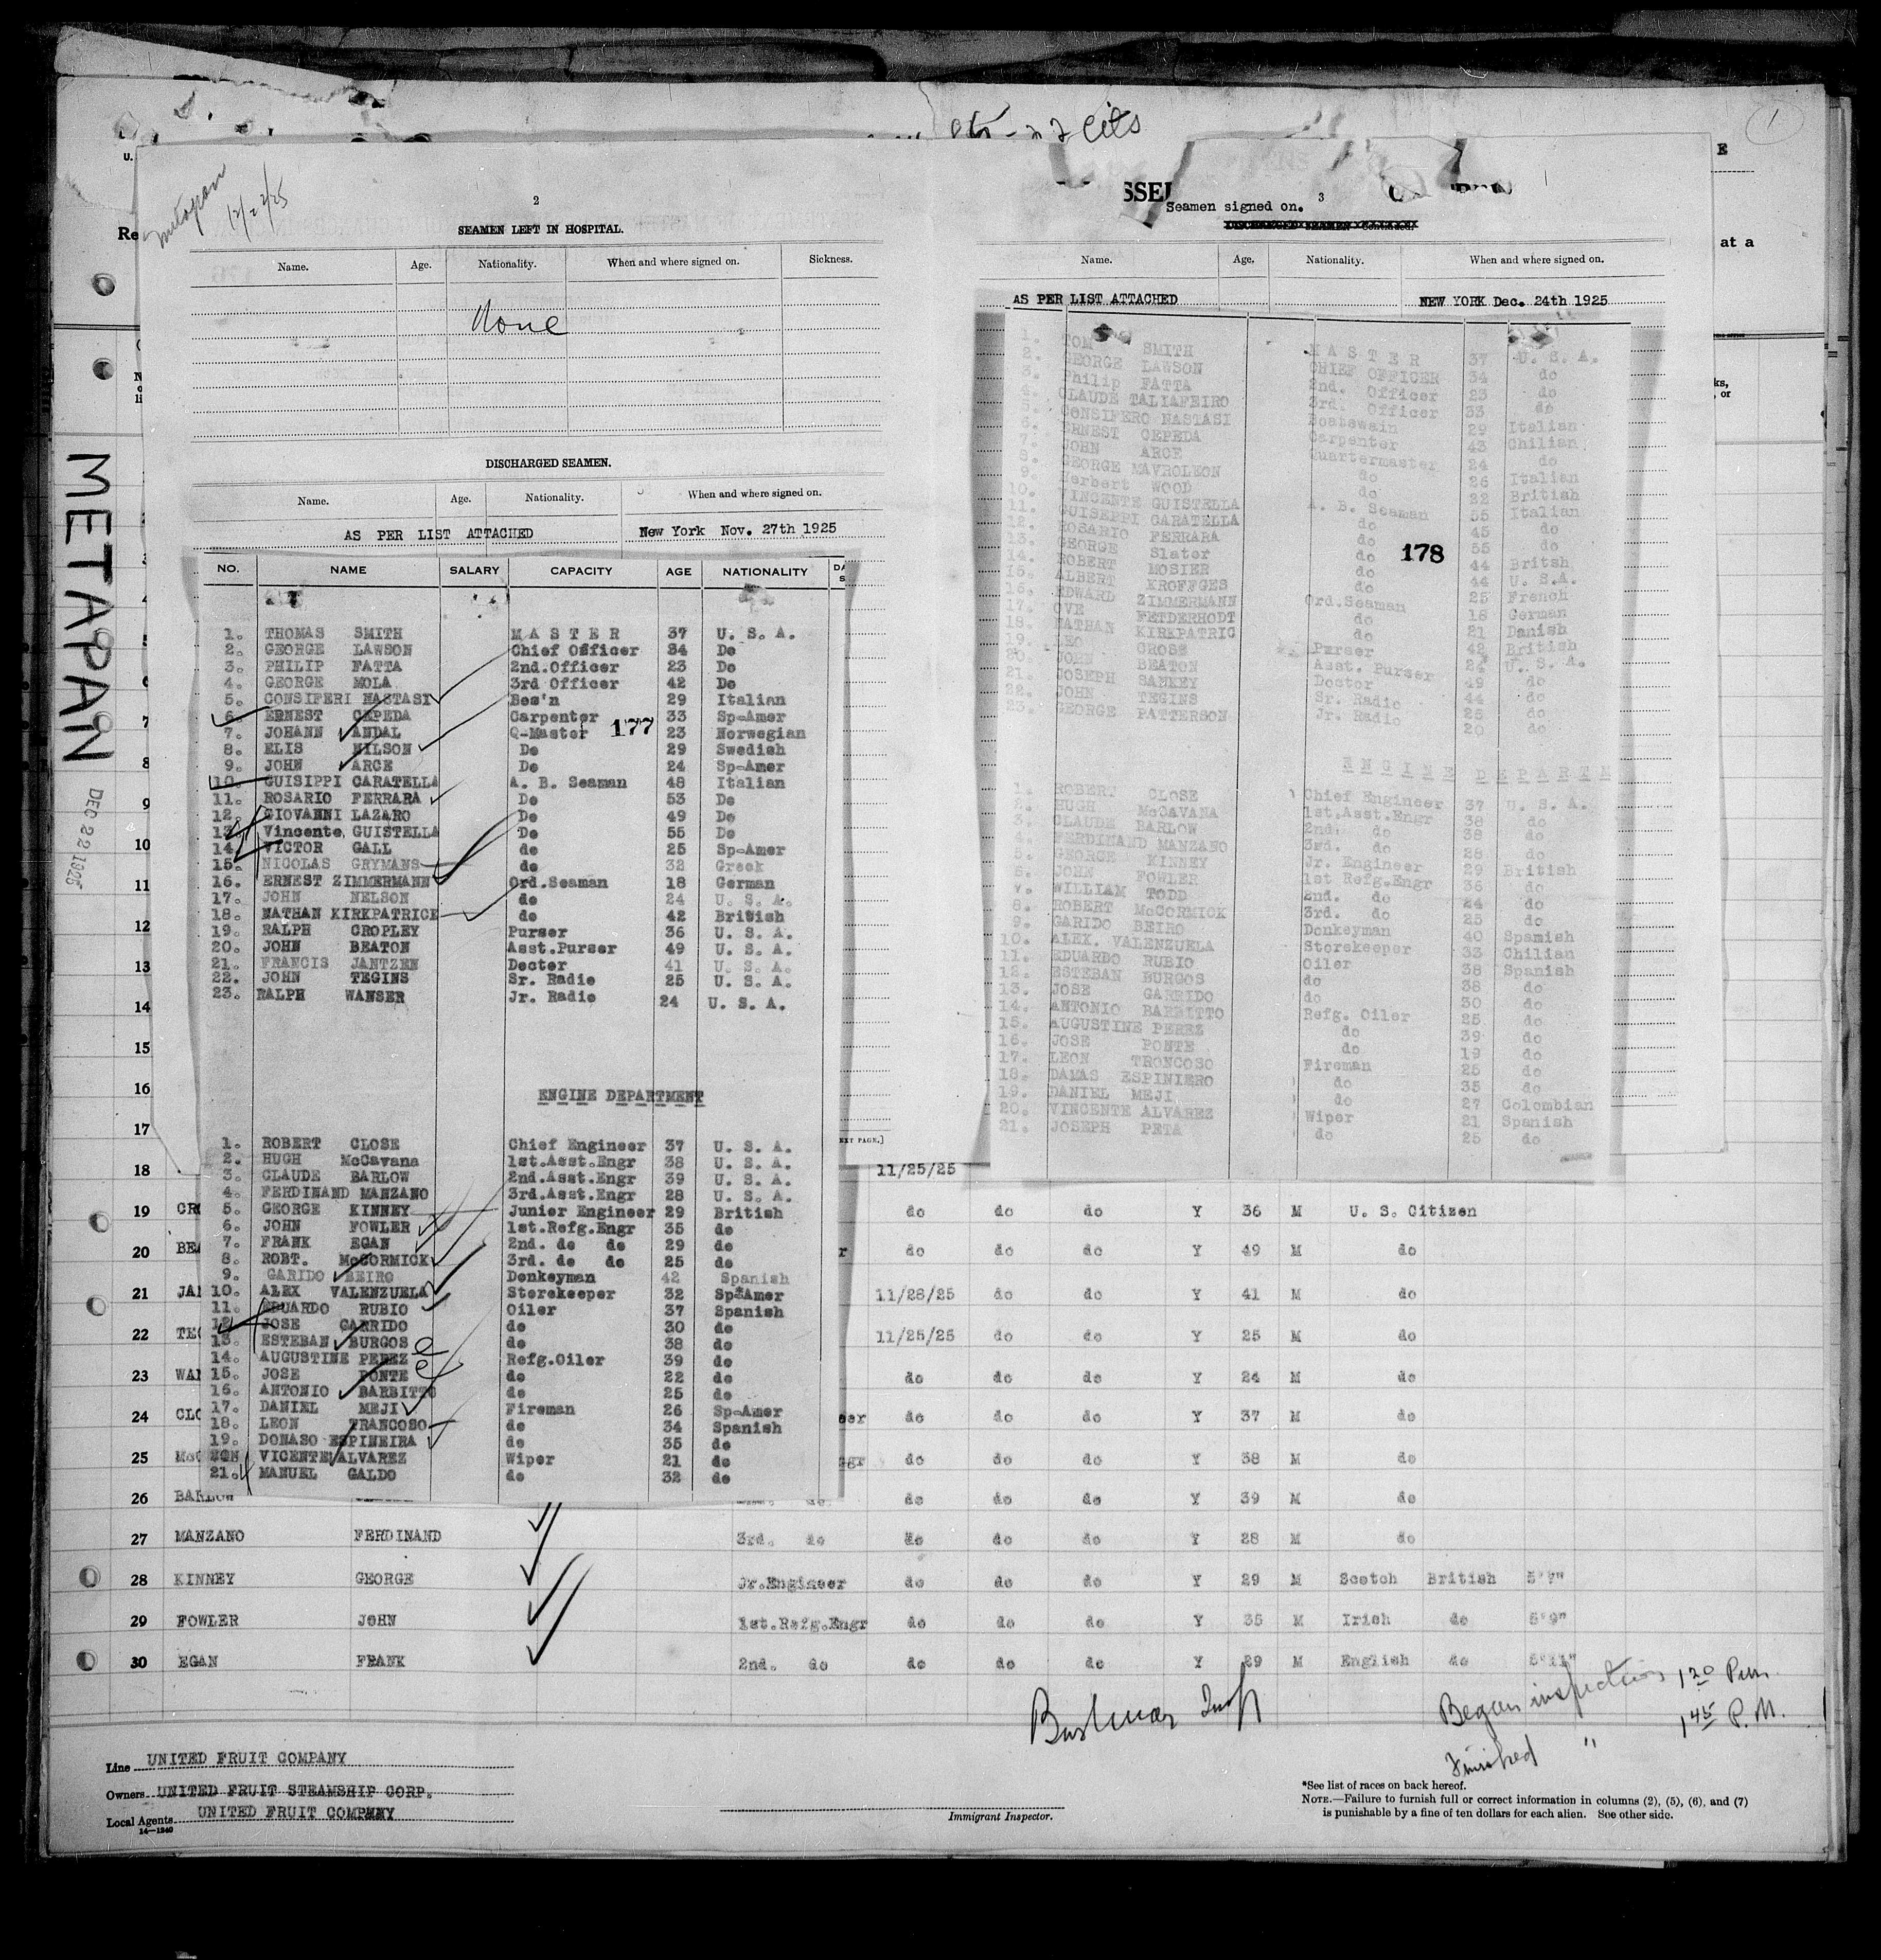 Cits
1
U.
E
Re
at a
Metapan
12/22/25
2
SEAMEN LEFT IN HOSPITAL.
Name. Age. Nationality. When and where signed on. Sickness.
None
DISCHARGED SEAMEN.
Name. Age. Nationality. When and where signed on.
AS PER LIST ATTACHED New York Nov. 27th 1925
NO. NAME SALARY CAPACITY AGE NATIONALITY
1. THOMAS SMITH M A S T E R 37 U. S. A.
2. GEORGE LAWSON Chief Officer 34 Do
3. PHILIP FATTA 2nd.Officer 23 Do
4. GEORGE MOLA 3rd Officer 42 Do
5. CONSIFERI NASTASI Bos'n 29 Italian
6. ERNEST CEPEDA Carpenter 33 Sp-Amer
177
7. JOHANN ANDAL Q-Master 23 Norwegian
8. ELIS NILSON Do 29 Swedish
9. JOHN ARCE Do 24 Sp-Amer
10. GUISIPPI CARATELLA A. B. Seaman 48 Italian
11. ROSARIO FERRARA Do 53 Do
12. GIOVANNI LAZARO Do 49 Do
13. Vincente GUISTELLA Do 55 Do
14. VICTOR GALL de 25 Sp-Amer
15. NICOLAS GRYMANS do 32 Greek
16. ERNEST ZIMMERMANN Ord.Seaman 18 German
17. JOHN NELSON do 24 U. S. A.
18. NATHAN KIRKPATRICK do 42 British
19. RALPH CROPLEY Purser 36 U. S. A.
20. JOHN BEATON Asst.Purser 49 U. S. A.
21. FRANCIS JANTZEN Docter 41 U. S. A.
22. JOHN TEGINS Sr. Radio 25 U. S. A.
23. RALPH WANSER Jr. Radio 24 U. S. A.
ENGINE DEPARTMENT
1. ROBERT CLOSE Chief Engineer 37 U. S. A.
2. HUGH McCavana 1st.Asst.Engr 38 U. S. A.
3. CLAUDE BARLOW 2nd.Asst.Engr 39 U. S. A.
4. FERDINAND MANZANO 3rd.Asst.Engr 28 U. S. A.
5. GEORGE KINNEY Junier Engineer 29 British
6. JOHN FOWLER 1st.Refg.Engr 35 do
7. FRANK EGAN 2nd. do do 29 do
8. ROBT. McCORMICK 3rd. do do 25 do
9. GARIDO BEIRO Donkeyman 42 Spanish
10. ALEX VALENZUELA Storekeeper 32 Sp-Amer
11. EDUARDO RUBIO Oiler 37 Spanish
12. JOSE GARRIDO do 30 do
13. ESTEBAN BURGOS do 38 do
14. AUGUSTINE PEREZ Refg.Oiler 39 do
15. JOSE PONTE do 22 do
16. ANTONIO BARBITTO do 25 do
17. DANIEL MEJI Fireman 26 Sp-Amer
18. LEON FRANCOSO do 34 Spanish
19. DONASO ESPINEIRA do 35 do
VICENTE ALVAREZ Wiper 21 do
21. MANUEL GALDO do 32 do
3
Seamen signed on.
DISCHARGED SEAMEN—Continued
Name. Age. Nationality. When and where signed on.
AS PER LIST ATTACHED NEW YORK Dec. 24th 1925
1. TOM SMITH M A S T E R 37 U. S. A.
2. GEORGE LAWSON CHIEF OFFICER 34 do
3. Philip FATTA 2nd. Officer 23 do
4. CLAUDE TALIAFEIRO 3rd. Officer 33 do
5. CONSIFERO NASTASI Boatswain 29 Italian
6. ERNEST CEPEDA Carpenter 43 Chilian
7. JOHN ARCE Quartermaster 24 do
8. GEORGE MAVROLEON do 26 Italian
9. Herbert WOOD do 22 British
10. VINCENTE GUISTELLA A. B. Seaman 55 Italian
11. GUISEPPI CARATELLA do 45 do
12. ROSARIO FERRARA do 55 do
178
13. GEORGE Slater do 44 Britsh
14. ROBERT MOSIER do 44 U. S.A.
15. ALBERT KROFFGES do 25 French
16. EDWARD ZIMMERMANN Ord.Seaman 18 German
17. OVE FETDERHODT do 21 Danish
18. NATHAN KIRKPATRIC do 42 British
19. LEO GROSS Purser 24 U. S. A.
20. JOHN BEATON Asst. Purser 49 do
21. JOSEPH SANKEY Doctor 44 do
22. JOHN TEGINS Sr. Radio 25 do
23. GEORGE PATTERSON Jr. Radio 20 do
E N G I N E D E P A R T M
1. ROBERT CLOSE Chief Engineer 37 U. S. A.
2. HUGH McCAVANA 1st.Asst.Engr 38 do
3. CLAUDE BARLOW 2nd. do 38 do
4. FERDINAND MANZANO 3rd. do 28 do
5. GEORGE KINNEY Jr. Engineer 29 British
6. JOHN FOWLER 1st Refg.Engr 36 do
7. WILLIAM TODD 2nd. do 24 do
8. ROBERT McCORMICK 3rd. do 25 do
9. GARIDO BEIRO Donkeyman 40 Spanish
10. ALEX. VALENZUELA Storekeeper 33 Chilian
11. EDUARDO RUBIO Oiler 38 Spanish
12. ESTEBAN BURGOS do 38 do
13. JOSE GARRIDO do 30 do
14. ANTONIO BARBITTO Refg. Oiler 25 do
15. AUGUSTINE PEREZ do 39 do
16. JOSE PONTE do 19 do
17. LEON TRONCOSO Fireman 25 do
18. DAMAS ESPINIERO do 35 do
19. DANIEL MEJI do 27 Colombian
20. VINCENTE ALVAREZ Wiper 21 Spanish
21. JOSEPH PETA do 25 do
METAPAN
DEC 22 1925
3
4
5
6
7
8
9
10
11
12
13
14
15
16
17
18 11/25/25
19 do do do Y 36 M U. S. Citizen
20 do do do Y 49 M do
21 11/28/25 do do Y 41 M do
22 11/25/25 do do Y 25 M do
23 do do do Y 24 M do
24 do do do Y 37 M do
25 do do do Y 38 M do
26 BARLOW do do do Y 39 M do
27 MANZANO FERDINAND 3rd. do do do do Y 28 M do
28 KINNEY GEORGE Jr.Engineer do do do Y 29 M Scotch British 5'7"
29 FOWLER JOHN 1st.Refg.Engr do do do Y 35 M Irish do 5'9"
30 EGAN FRANK 2nd. do do do do Y 29 M English do 5'11"
Began inspection 1 20 P.m.
Finished " 1 45 P. M.
Line UNITED FRUIT COMPANY
Owners UNITED FRUIT STEAMSHIP CORP.
Local Agents UNITED FRUIT COMPANY
14—1240
Immigrant Inspector.
*See list of races on back hereof.
NOTE.—Failure to furnish full or correct information in columns (2), (5), (6), and (7)
is punishable by a fine of ten dollars for each alien. See other side.